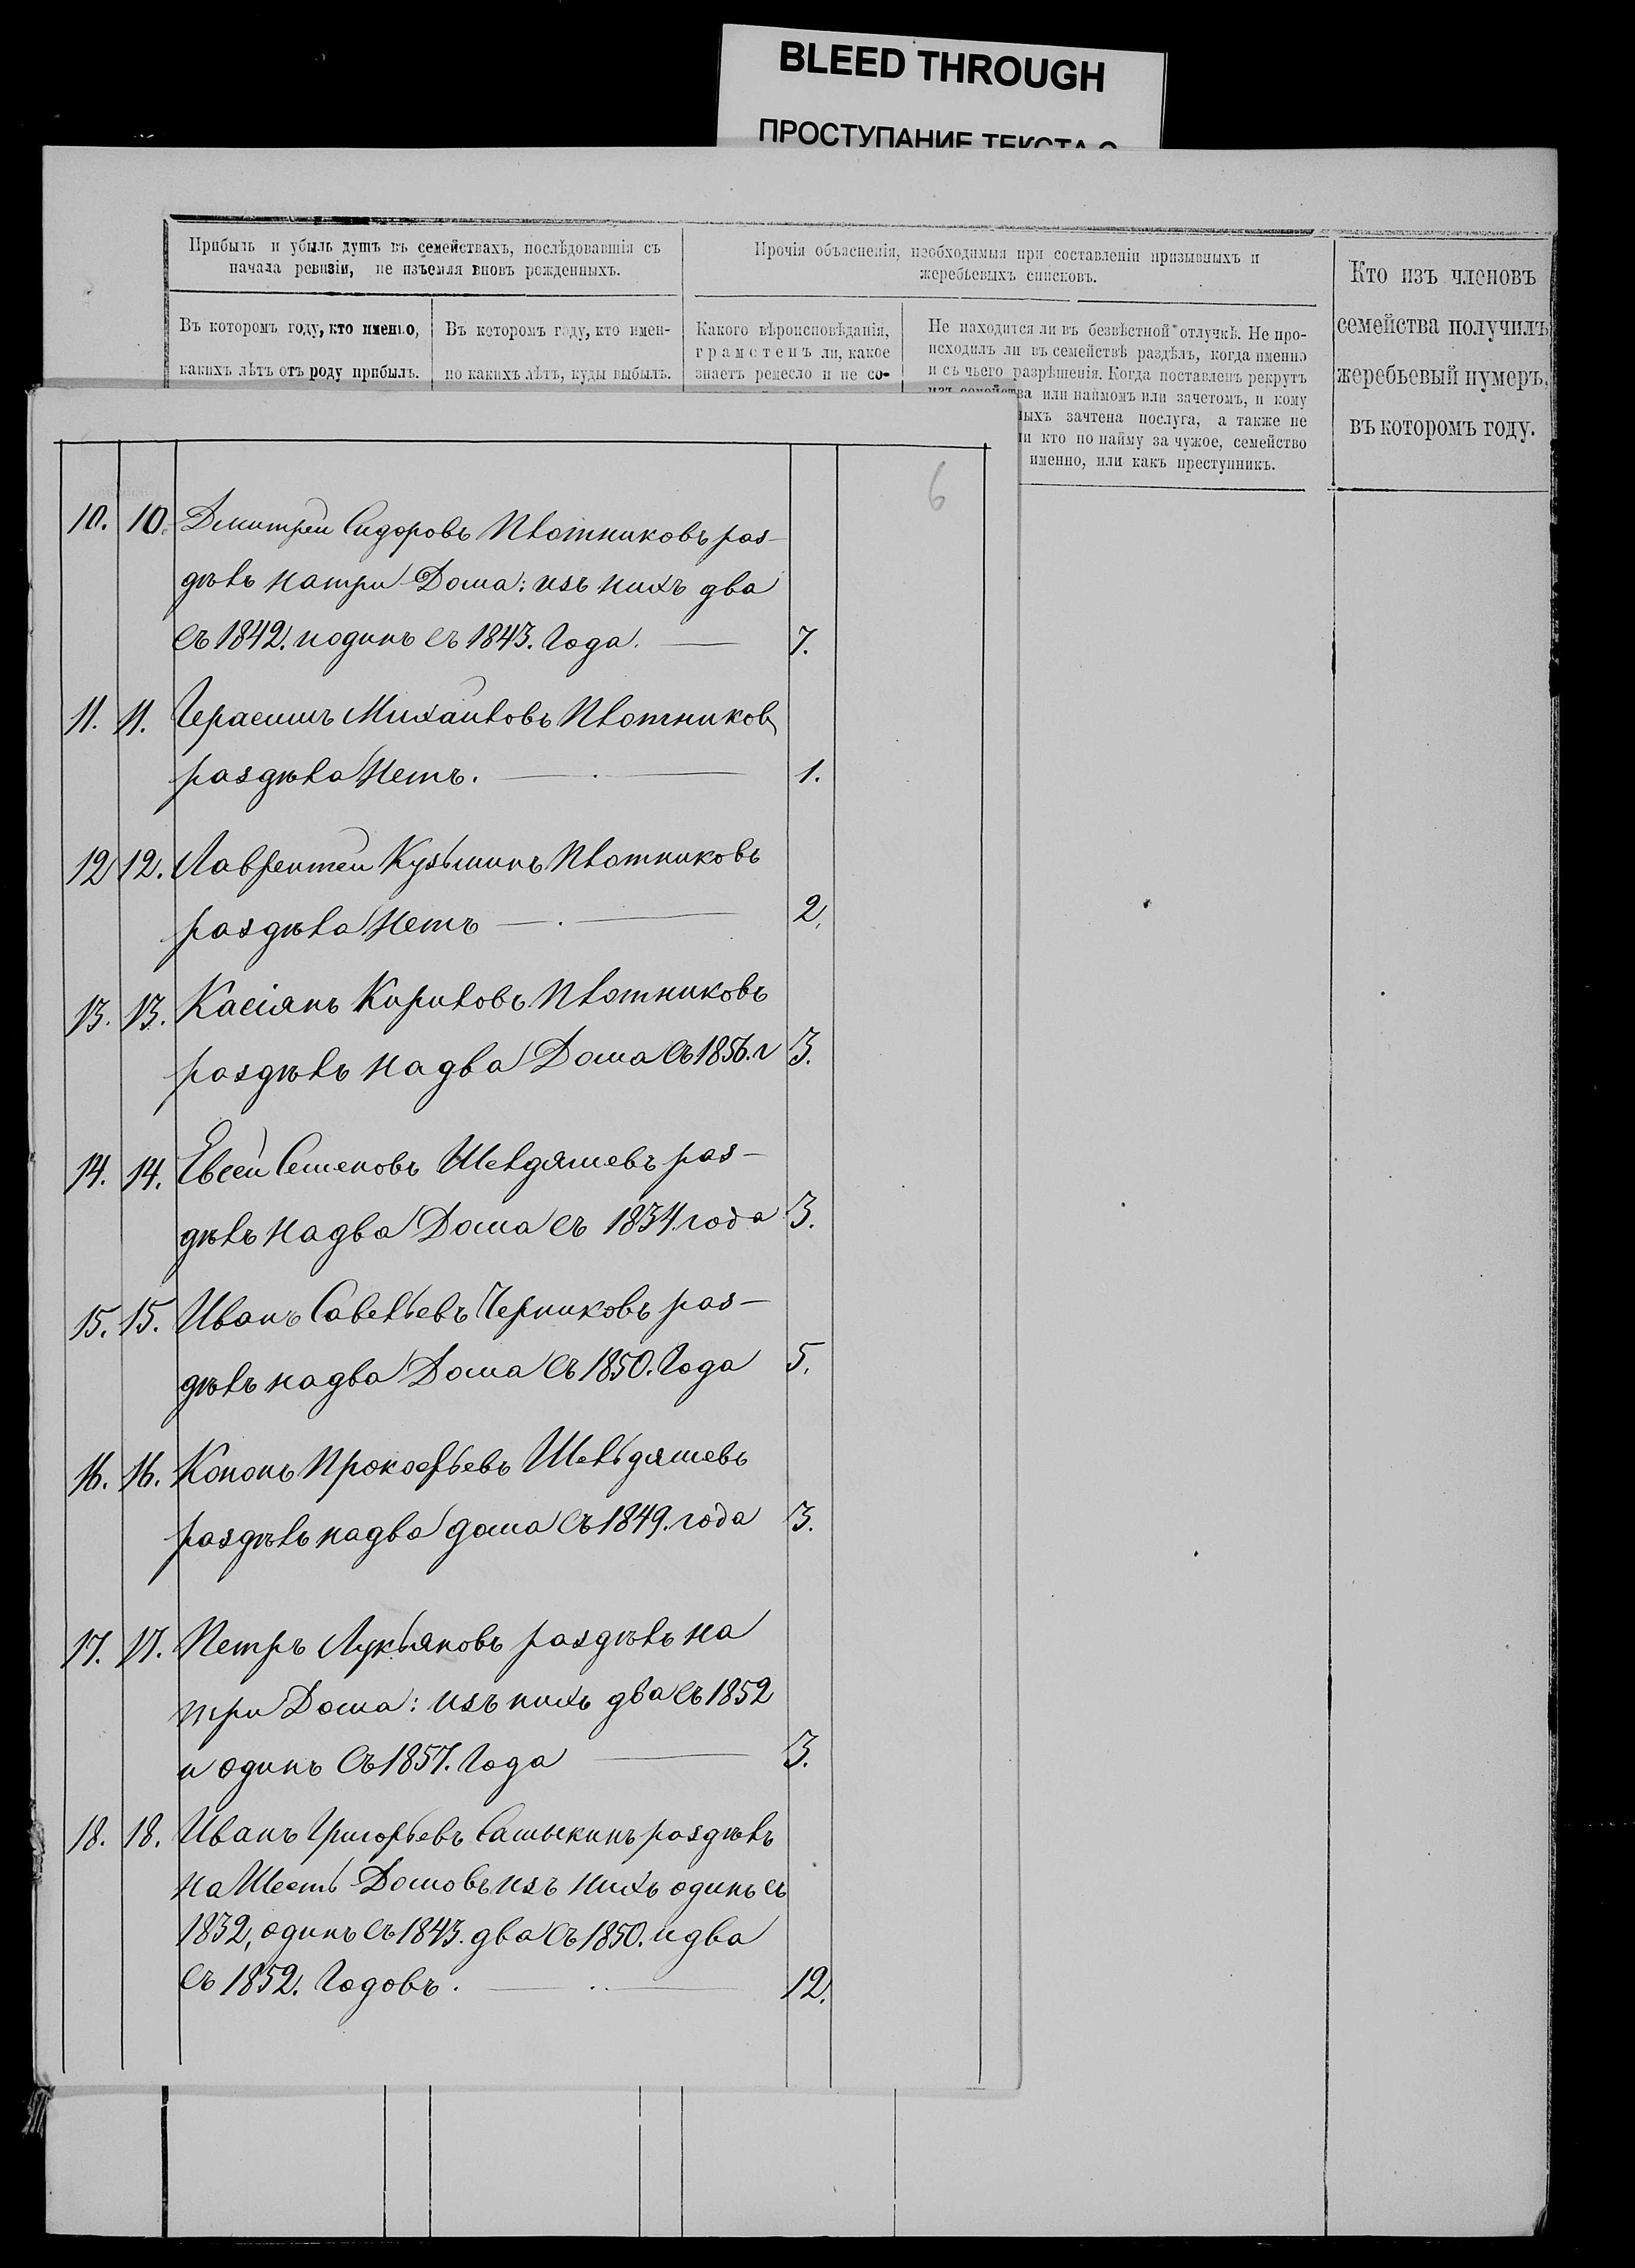 BLEED THROUGH
ПРОСТУПАНИЕ ТЕКСТА
Прибыль и убыль душъ въ семействахъ, послѣдовавшія съ
начала ревизіи, не изъемля вновь рожденныхъ.
Прочія объясненія, необходимыя при составленіи призывныхъ и
жеребьевыхъ списковъ.
Кто изъ членовъ
семейства получилъ
жеребьевый нумеръ,
въ которомъ году.
Въ которомъ году, кто именно,
какихъ лѣтъ отъ роду прибылъ.
Въ которомъ году, кто имен-
но какихъ лѣтъ, куды выбылъ.
Какого вѣроисповѣданія,
грамотенъ ли, какое
знаетъ ремесло и не со-
Не находится ли въ безвѣстной отлучкѣ. Не про-
исходилъ ли въ семействѣ раздѣлъ, когда именно
и съ чьего разрѣшенія. Когда поставленъ рекрутъ
изъ семейства или наймомъ или зачетомъ, и кому
ныхъ зачтена послуга, а также не
ли кто по найму за чужое, семейство
именно, или какъ преступникъ.
6
10. 10. Дмитрей Сидоровъ Плотниковъ раз-
дѣлъ натри Дома: изъ нихъ два
съ 1842. иодинъ съ 1843. Года. 7.
11. 11. Герасимъ Михайловъ Плотников
раздѣла Нетъ. 1.
12 12. Лаврентей Кузьминъ Плотниковъ
раздѣла Нетъ 2.
13. 13. Касіянъ Кириловъ Плотниковъ
раздѣлъ на два Дома съ 1856. г 3.
14. 14. Евсей Семеновъ Шелдяшевъ раз-
дѣлъ на два Дома съ 1834. года 3.
15. 15. Иванъ Савельевъ Черниковъ раз-
дѣлъ надва Дома съ 1850. Года 5.
16. 16. Кононъ Прокофьевъ Шельдяшевъ
раздѣлъ надва дома съ 1849. года 3.
17. 17. Петръ Лукьяновъ раздѣлъ на
три Дома: изъ нихъ два съ 1852
и одинъ съ 1857. Года 3.
18. 18. Иванъ Григорьевъ Самыкинъ раздѣлъ
на Шесть Домовъ изъ нихъ одинъ съ
1832, одинъ съ 1843. два съ 1850. идва
съ 1852. Годовъ. 12.